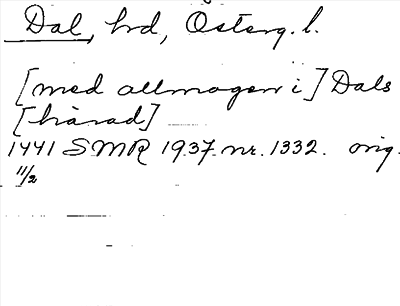 Dal, hrd, Österg. l.
[med allmogen i] Dals
[härad]
1441 SMR 1937 nr. 1332. orig.
11/2